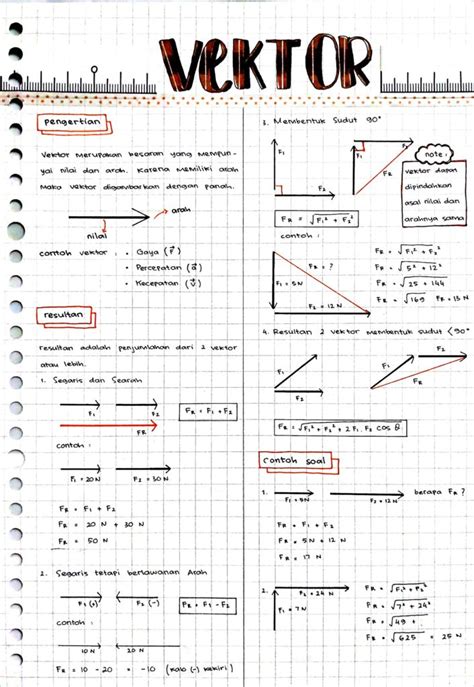 VEKTOR
0
pengertian
Vektor merupakan besaran yang mempun-
yai nilai dan arah. Karena memiliki arah
maka vektor digambarkan dengan panah.
arah
nilai
contoh vektor : • Gaya (F⃗)
• Percepatan (a⃗)
• Kecepatan (v⃗)
resultan
resultan adalah penjumlahan dari 2 vektor
atau lebih.
1. Segaris dan Searah
F₁ F₂
FR
FR = F₁ + F₂
contoh :
F₁ = 20N F₂ = 30N
FR = F₁ + F₂
FR = 20 N + 30 N
FR = 50 N
2. Segaris tetapi berlawanan Arah
F₁ (+) F₂ (-)
FR = F₁ - F₂
contoh :
10 N 20 N
FR = 10 - 20 = -10 (kab (-) kekiri)
3. Membentuk Sudut 90°
F₁
F₂
F₁
F₂
FR
note :
vektor dapat
dipindahkan
asal nilai dan
arahnya sama
FR = √F₁² + F₂²
contoh :
F₁ = 5N
FR = ?
F₂ = 12 N
FR = √F₁² + F₂²
FR = √5² + 12²
FR = √25 + 144
FR = √169 FR = 13 N
4. Resultan 2 vektor membentuk sudut <90°
F₁
F₂
F₁
F₂
FR
FR = √F₁² + F₂² + 2 F₁ . F₂ cos θ
contoh soal
1. F₁ = 5N F₂ = 12 N berapa FR ?
FR = F₁ + F₂
FR = 5 N + 12 N
FR = 17 N
2. F₂ = 24 N
F₁ = 7N
FR = √F₁² + F₂²
FR = √7² + 24²
FR = √49 +
FR = √625 = 25 N